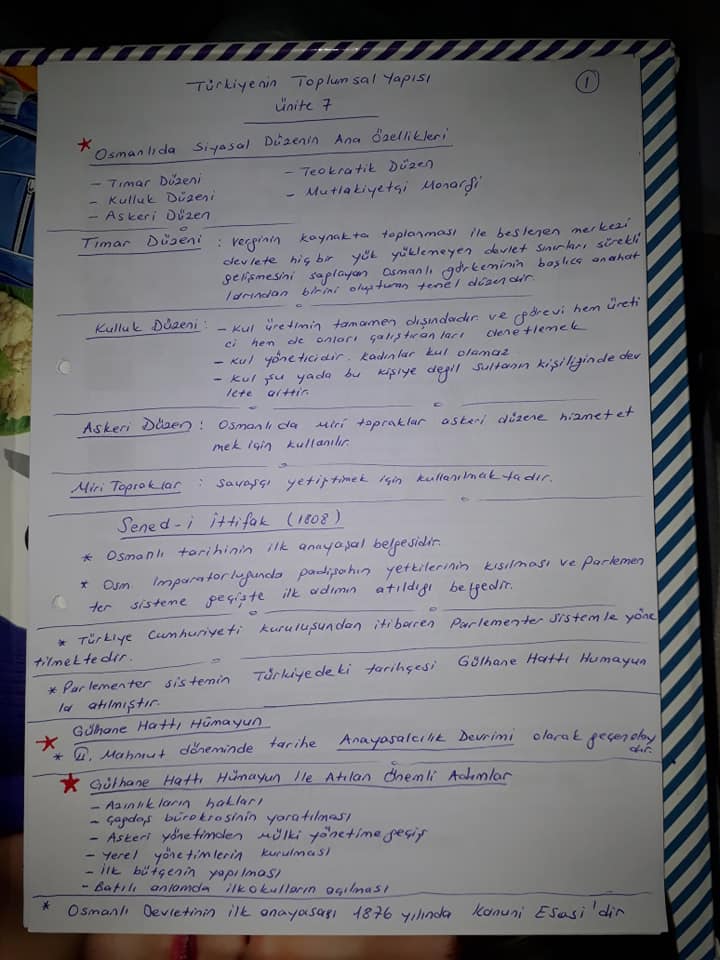 Türkiyenin Toplumsal Yapısı
1
Ünite 7
* Osmanlıda Siyasal Düzenin Ana Özellikleri
- Tımar Düzeni
- Kulluk Düzeni
- Askeri Düzen
- Teokratik Düzen
- Mutlakiyetçi Monarşi
Tımar Düzeni : Verginin kaynakta toplanması ile beslenen merkezi
devlete hiç bir yük yüklemeyen devlet sınırları sürekli
gelişmesini sağlayan Osmanlı görkeminin başlıca anahat
larından birini oluşturan temel düzendir.
Kulluk Düzeni : - Kul üretimin tamamen dışındadır ve görevi hem üreti
ci hem de onları çalıştıranları denetlemek
- Kul yöneticidir. Kadınlar kul olamaz
- Kul şu yada bu kişiye değil sultanın kişiliğinde dev
lete aittir.
Askeri Düzen : Osmanlıda miri topraklar askeri düzene hizmet et
mek için kullanılır.
Miri Topraklar : Savaşçı yetiştimek için kullanılmaktadır.
Sened-i İttifak (1808)
* Osmanlı tarihinin ilk anayasal belgesidir.
* Osm İmparatorluğunda padişahın yetkilerinin kısılması ve Parlemen
ter sisteme geçişte ilk adımın atıldığı belgedir.
* Türkiye Cumhuriyeti kuruluşundan itibaren Parlementer Sistemle yöne
tilmektedir.
* Parlementer sistemin Türkiyedeki tarihçesi Gülhane Hattı Humayun
la atılmıştır.
* Gülhane Hattı Hümayun
* II. Mahmut döneminde tarihe Anayasalcılık Devrimi olarak geçen olay
dır.
* Gülhane Hattı Hümayun İle Atılan Önemli Adımlar
- Azınlıkların hakları
- Çağdaş bürokrasinin yaratılması
- Askeri yönetimden mülki yönetime geçiş
- Yerel yönetimlerin kurulması
- İlk bütçenin yapılması
- Batılı anlamda ilkokulların açılması
* Osmanlı Devletinin ilk anayasası 1876 yılında Kanuni Esasi'dir